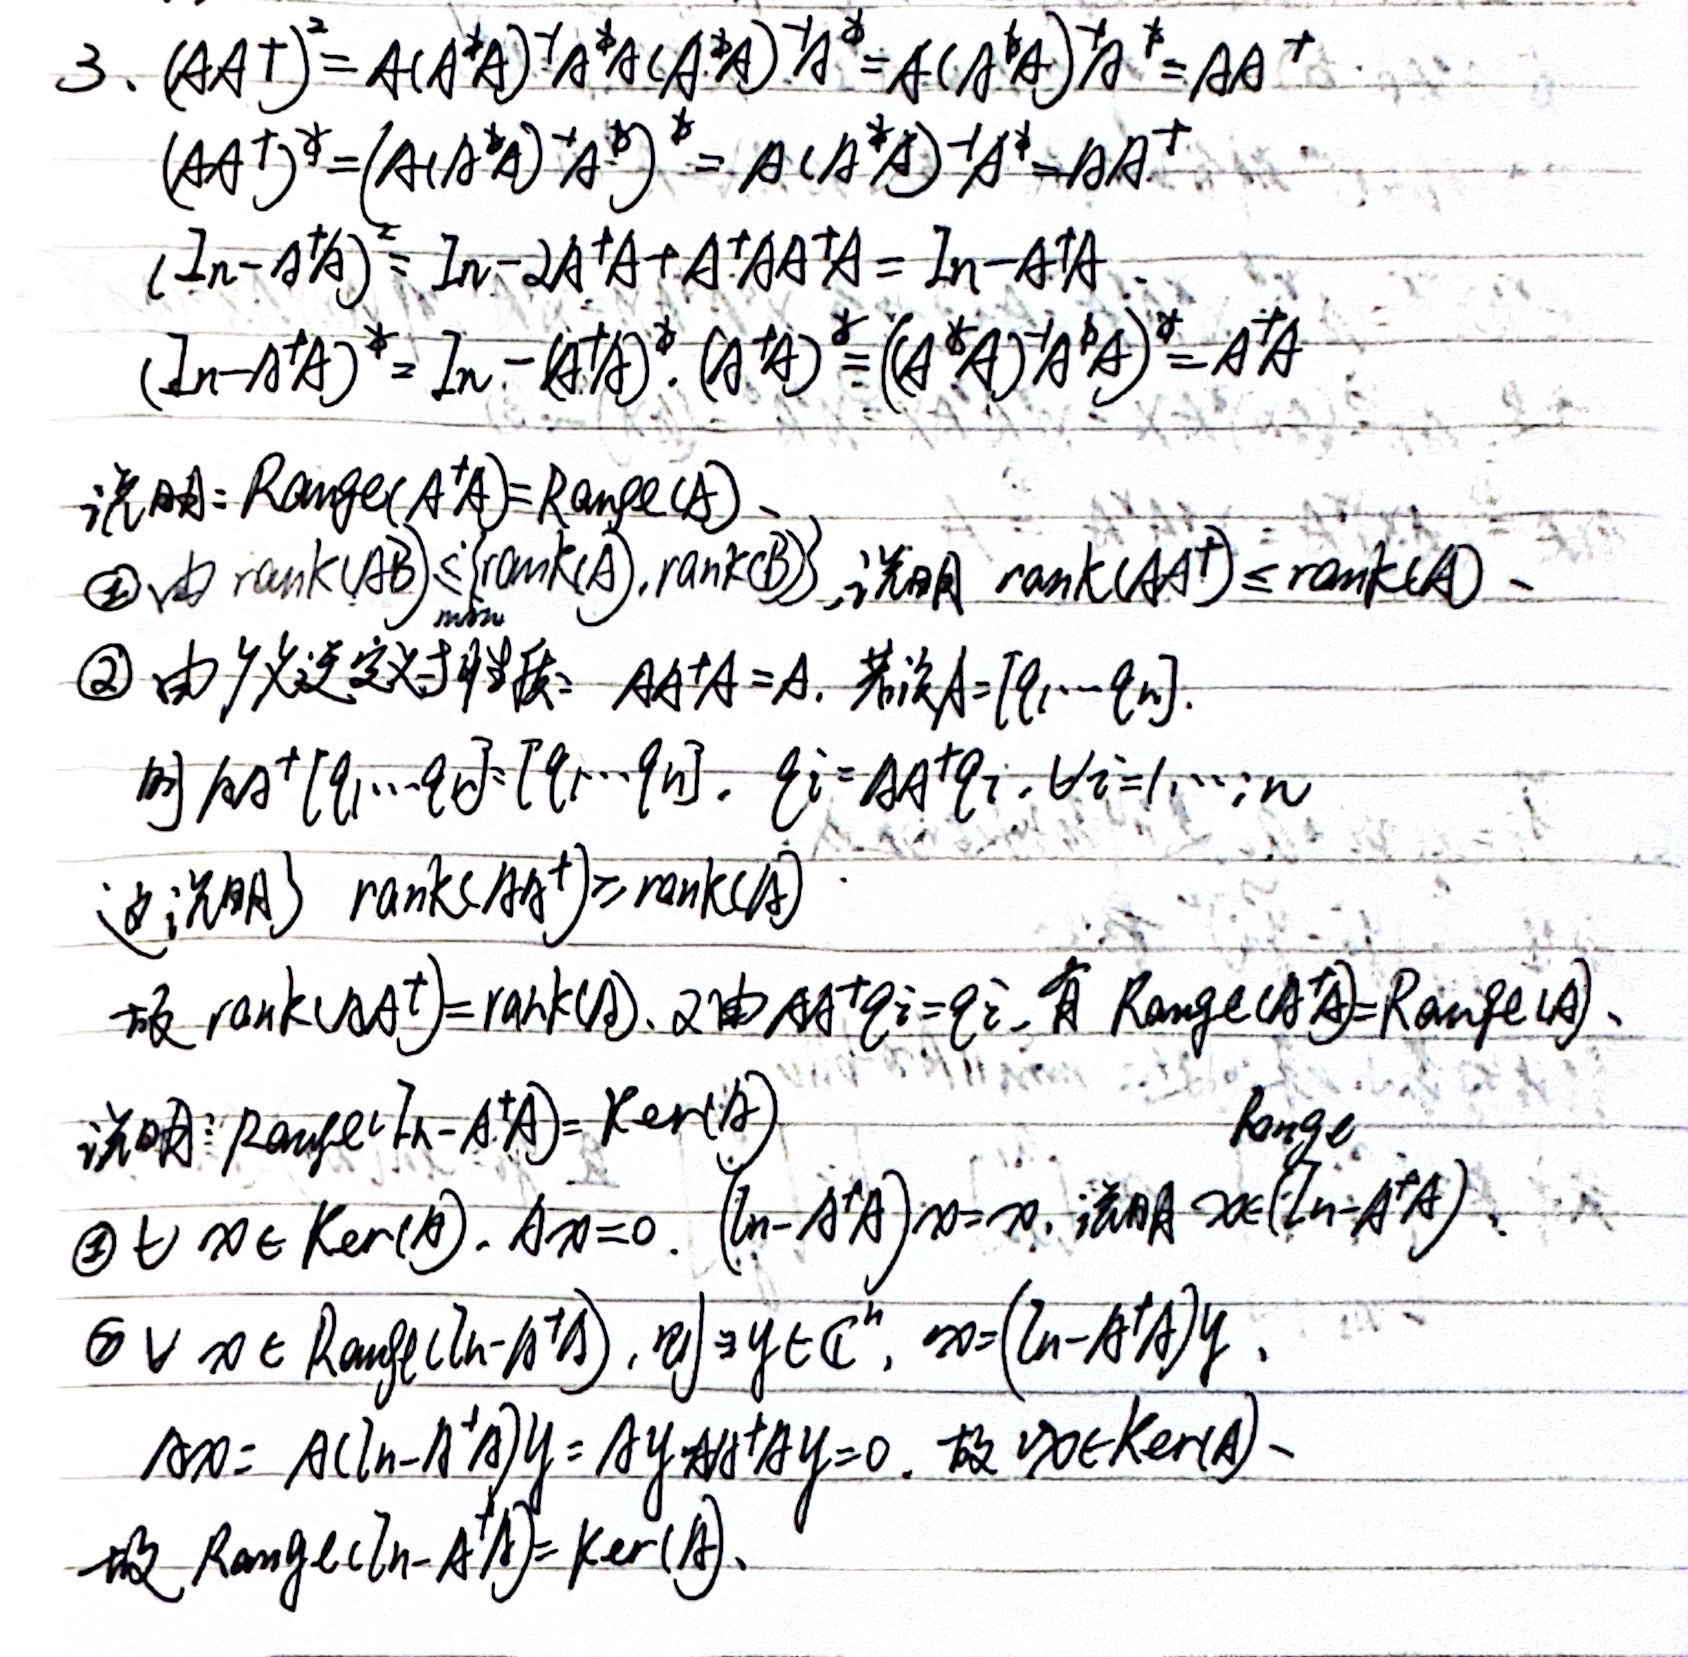 3、(AA†)²=A(A*A)⁻¹A*A(A*A)⁻¹A*=A(A*A)⁻¹A*=AA†.
(AA†)*=(A(A*A)⁻¹A*)*=A(A*A)⁻¹A*=AA†
(In-A†A)²=In-2A†A+A†AA†A=In-A†A.
(In-A†A)*=In-(A†A)*. (A†A)*=((A*A)⁻¹A*A)*=A†A
说明:Range(A†A)=Range(A)、
①由 rank(AB)≤min{rank(A).rank(B)},说明 rank(AA†)≤rank(A)、
②由广义逆定义与性质: AA†A=A. 若设A=[q₁…qn].
则AA†[q₁…qn]=[q₁…qn]. qi=AA†qi.∀i=1.…;n
这说明了 rank(AA†)≥rank(A).
故 rank(AA†)=rank(A).又由AA†qi=qi.有 Range(A†A)=Range(A)、
说明:Range(In-A†A)=Ker(A)
①∀ x∈Ker(A).Ax=0. (In-A†A)x=x.说明 x∈Range(In-A†A)、
② ∀ x∈Range(In-A†A),则∃y∈ℂⁿ, x=(In-A†A)y、
Ax=A(In-A†A)y=Ay-AA†Ay=0. 故 x∈Ker(A)、
故 Range(In-A†A)=Ker(A)、